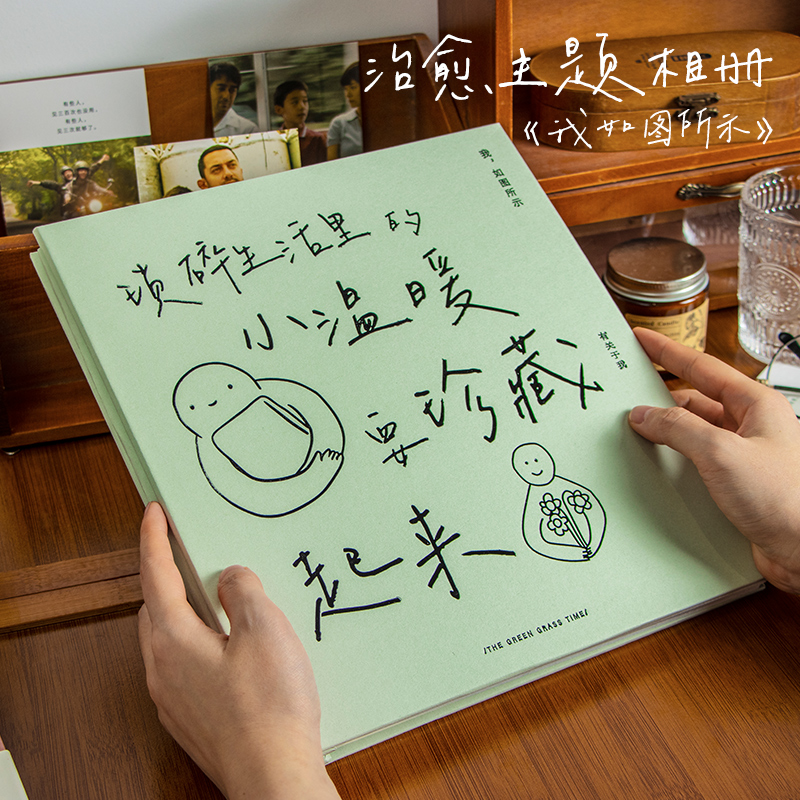 治愈主题相册
《我如图所示》
有些人,
见三百次也没用,
有些人,
见三次就够了。
我,如图所示
琐碎生活里的
小温暖
要珍藏
起来
有关于我
/THE GREEN GRASS TIME/